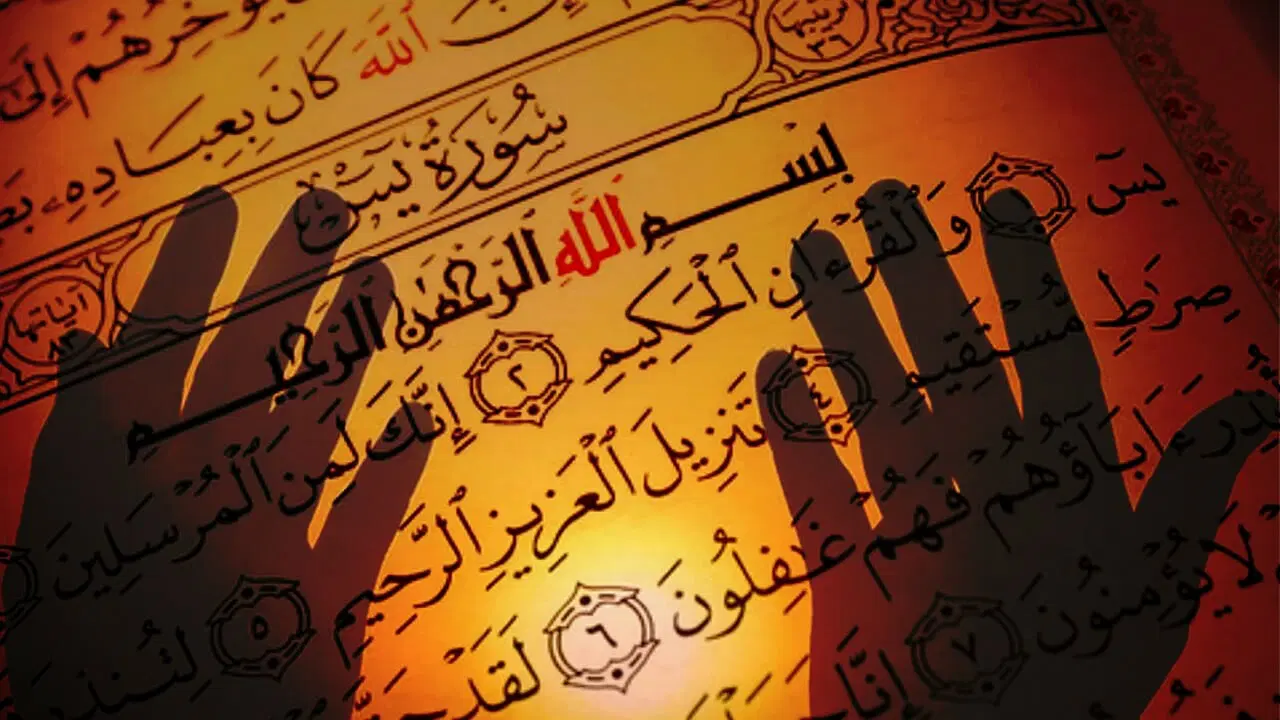 يُؤَخِّرُهُمْ إِلَىٰ
ٱللَّهَ كَانَ بِعِبَادِهِۦ
٣٦
سُورَةُ يسٓ
آيَاتُهَا ٨٣
بِسْمِ ٱللَّهِ ٱلرَّحْمَٰنِ ٱلرَّحِيمِ
يسٓ وَٱلْقُرْءَانِ ٱلْحَكِيمِ ٢ إِنَّكَ لَمِنَ ٱلْمُرْسَلِينَ
صِرَٰطٍ مُّسْتَقِيمٍ ٤ تَنزِيلَ ٱلْعَزِيزِ ٱلرَّحِيمِ ٥ لِتُنذِرَ
ءَابَآؤُهُمْ فَهُمْ غَٰفِلُونَ ٦ لَقَدْ
لَا يُؤْمِنُونَ ٧ إِنَّا